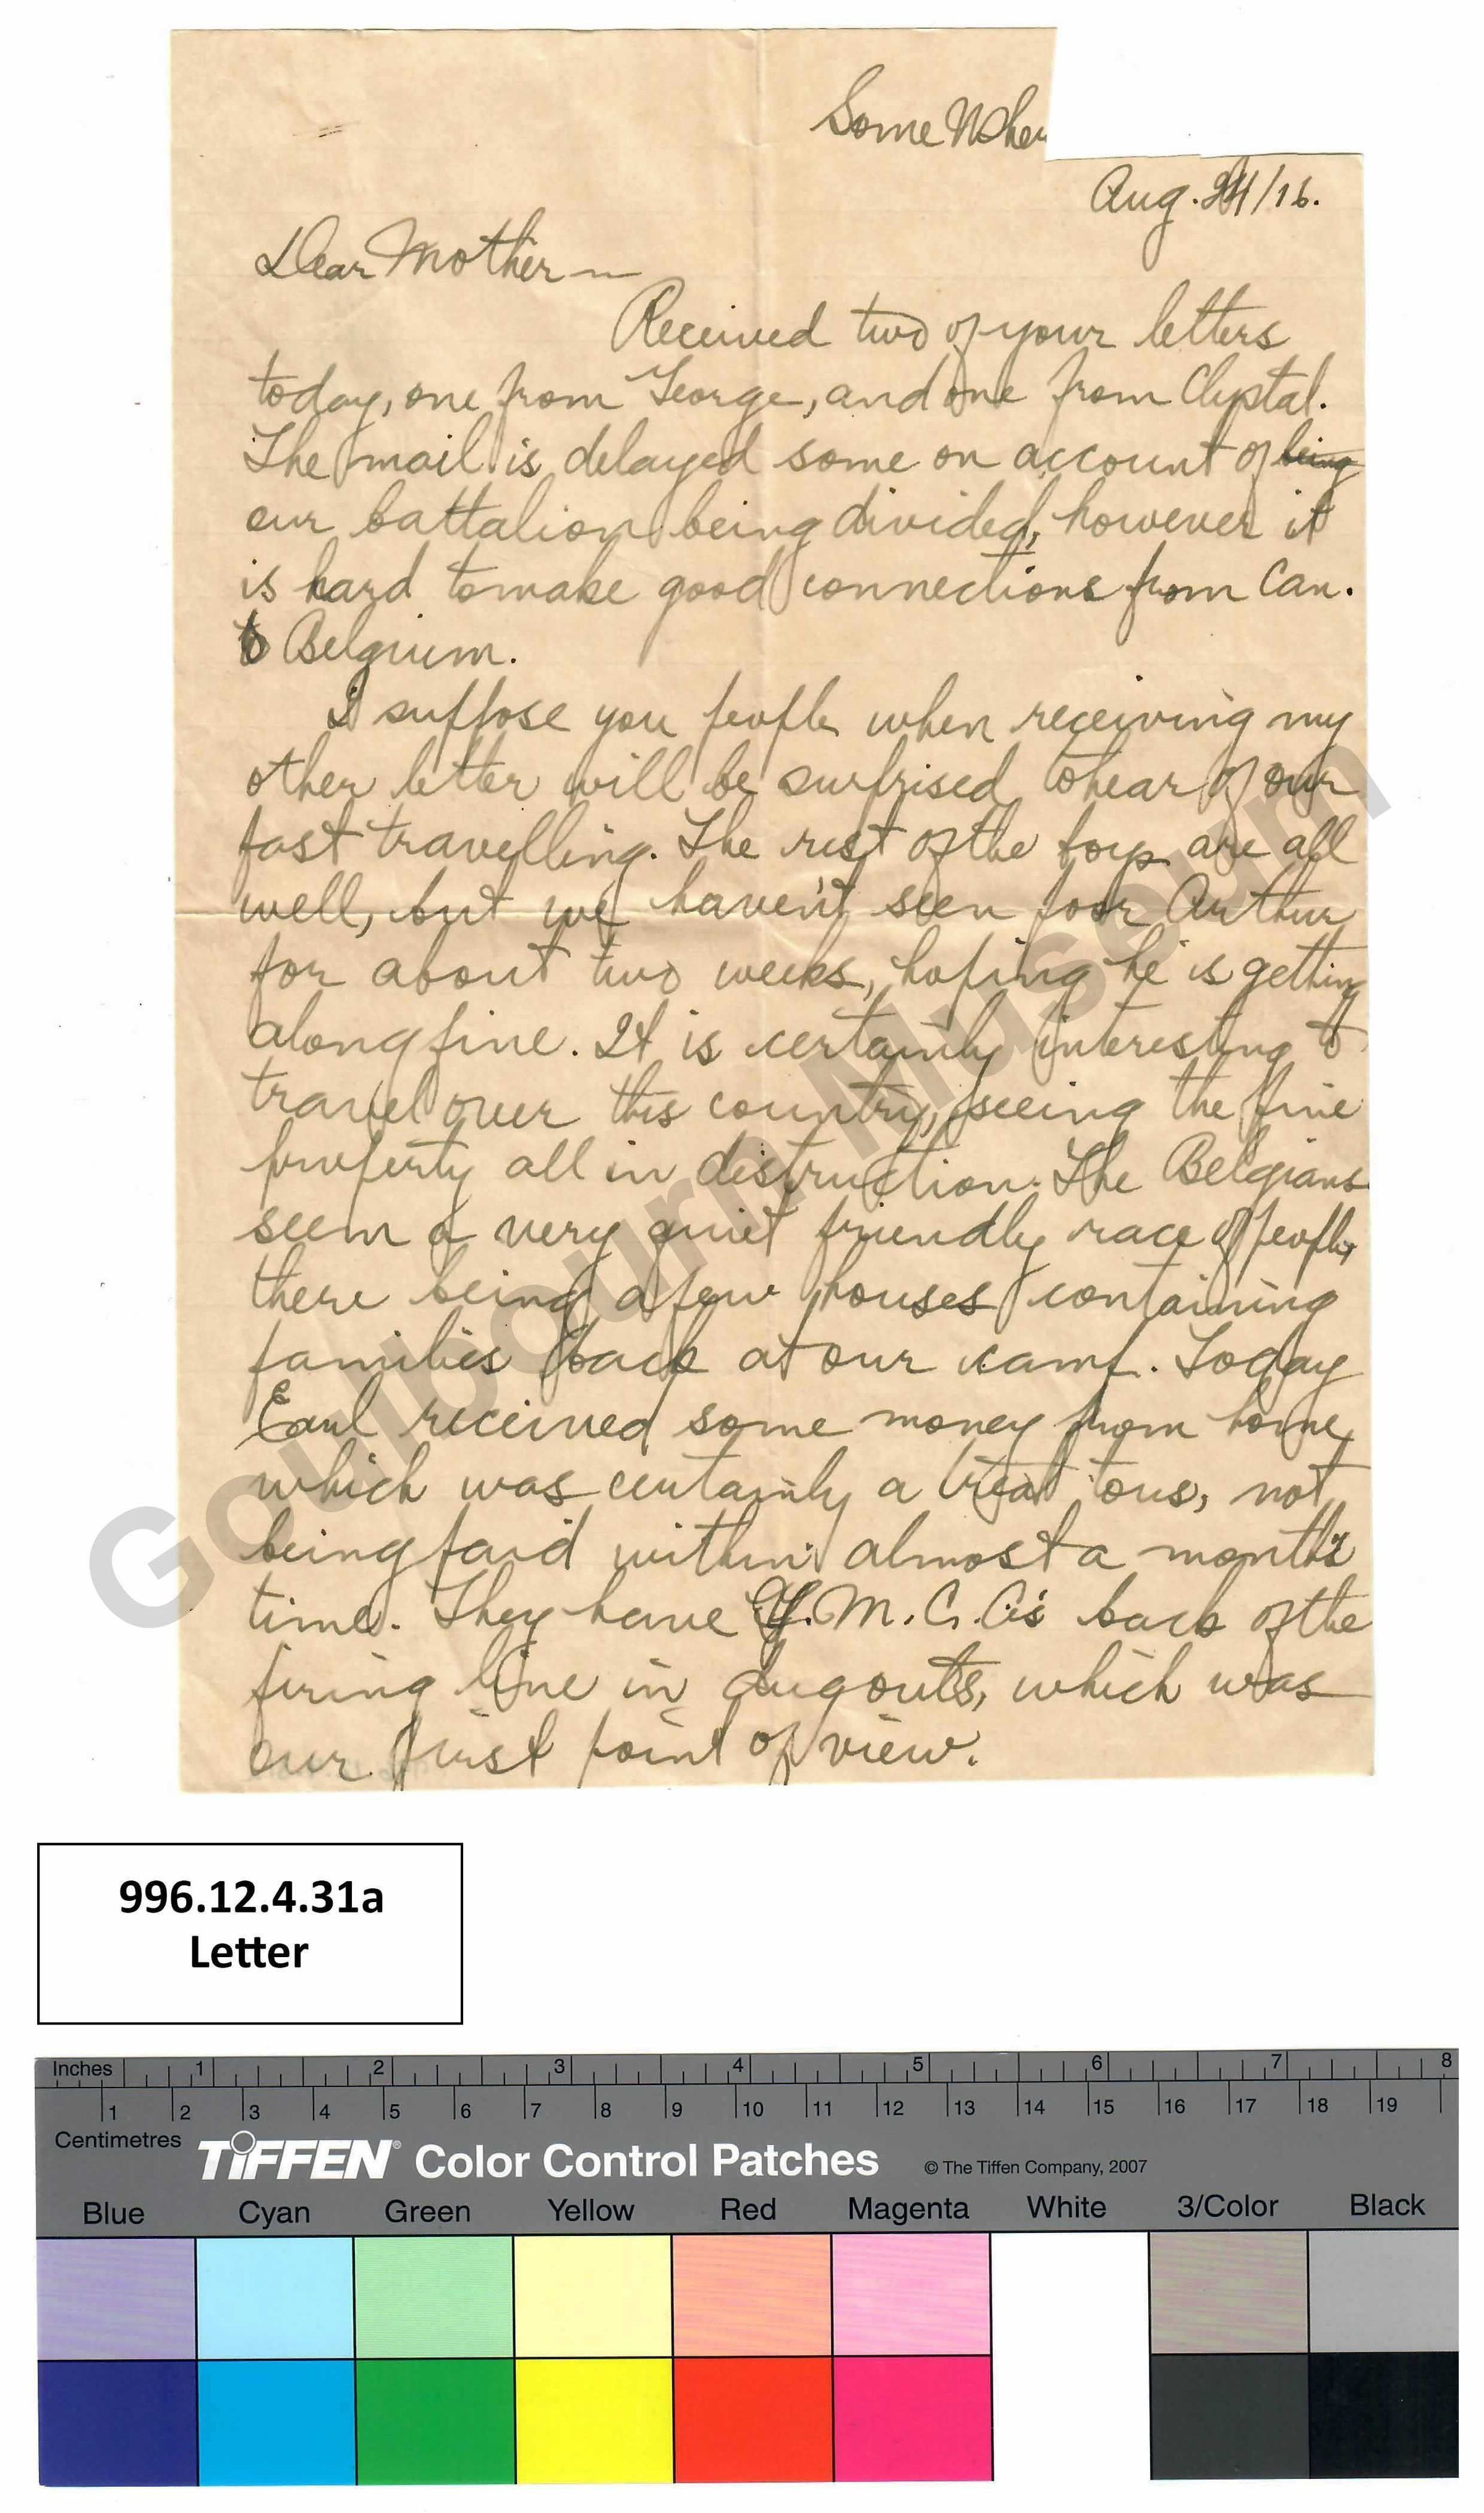 Some Wher
Aug. 24/16.
Dear Mother —
Received two of your letters
today, one from George, and one from Chrystal.
The mail is delayed some on account of being
our battalion being divided, however it
is hard to make good connections from Can.
to Belgium.
I suppose you people when receiving my
other letter will be surprised to hear of our
fast travelling. The rest of the boys are all
well, but we haven't seen poor Arthur
for about two weeks, hoping he is getting
along fine. It is certainly interesting to
travel over this country, seeing the fine
property all in distruction. The Belgians
seem a very quiet friendly race of people,
there being a few houses containing
families back at our camp. Today
Earl received some money from home
which was certainly a treat to us, not
being paid within almost a month's
time. They have Y.M.C.A's back of the
firing line in dugouts, which was
our first point of view.
Goulbourn Museum
996.12.4.31a
Letter
Inches 1 2 3 4 5 6 7 8
1 2 3 4 5 6 7 8 9 10 11 12 13 14 15 16 17 18 19
Centimetres
TIFFEN® Color Control Patches © The Tiffen Company, 2007
Blue Cyan Green Yellow Red Magenta White 3/Color Black